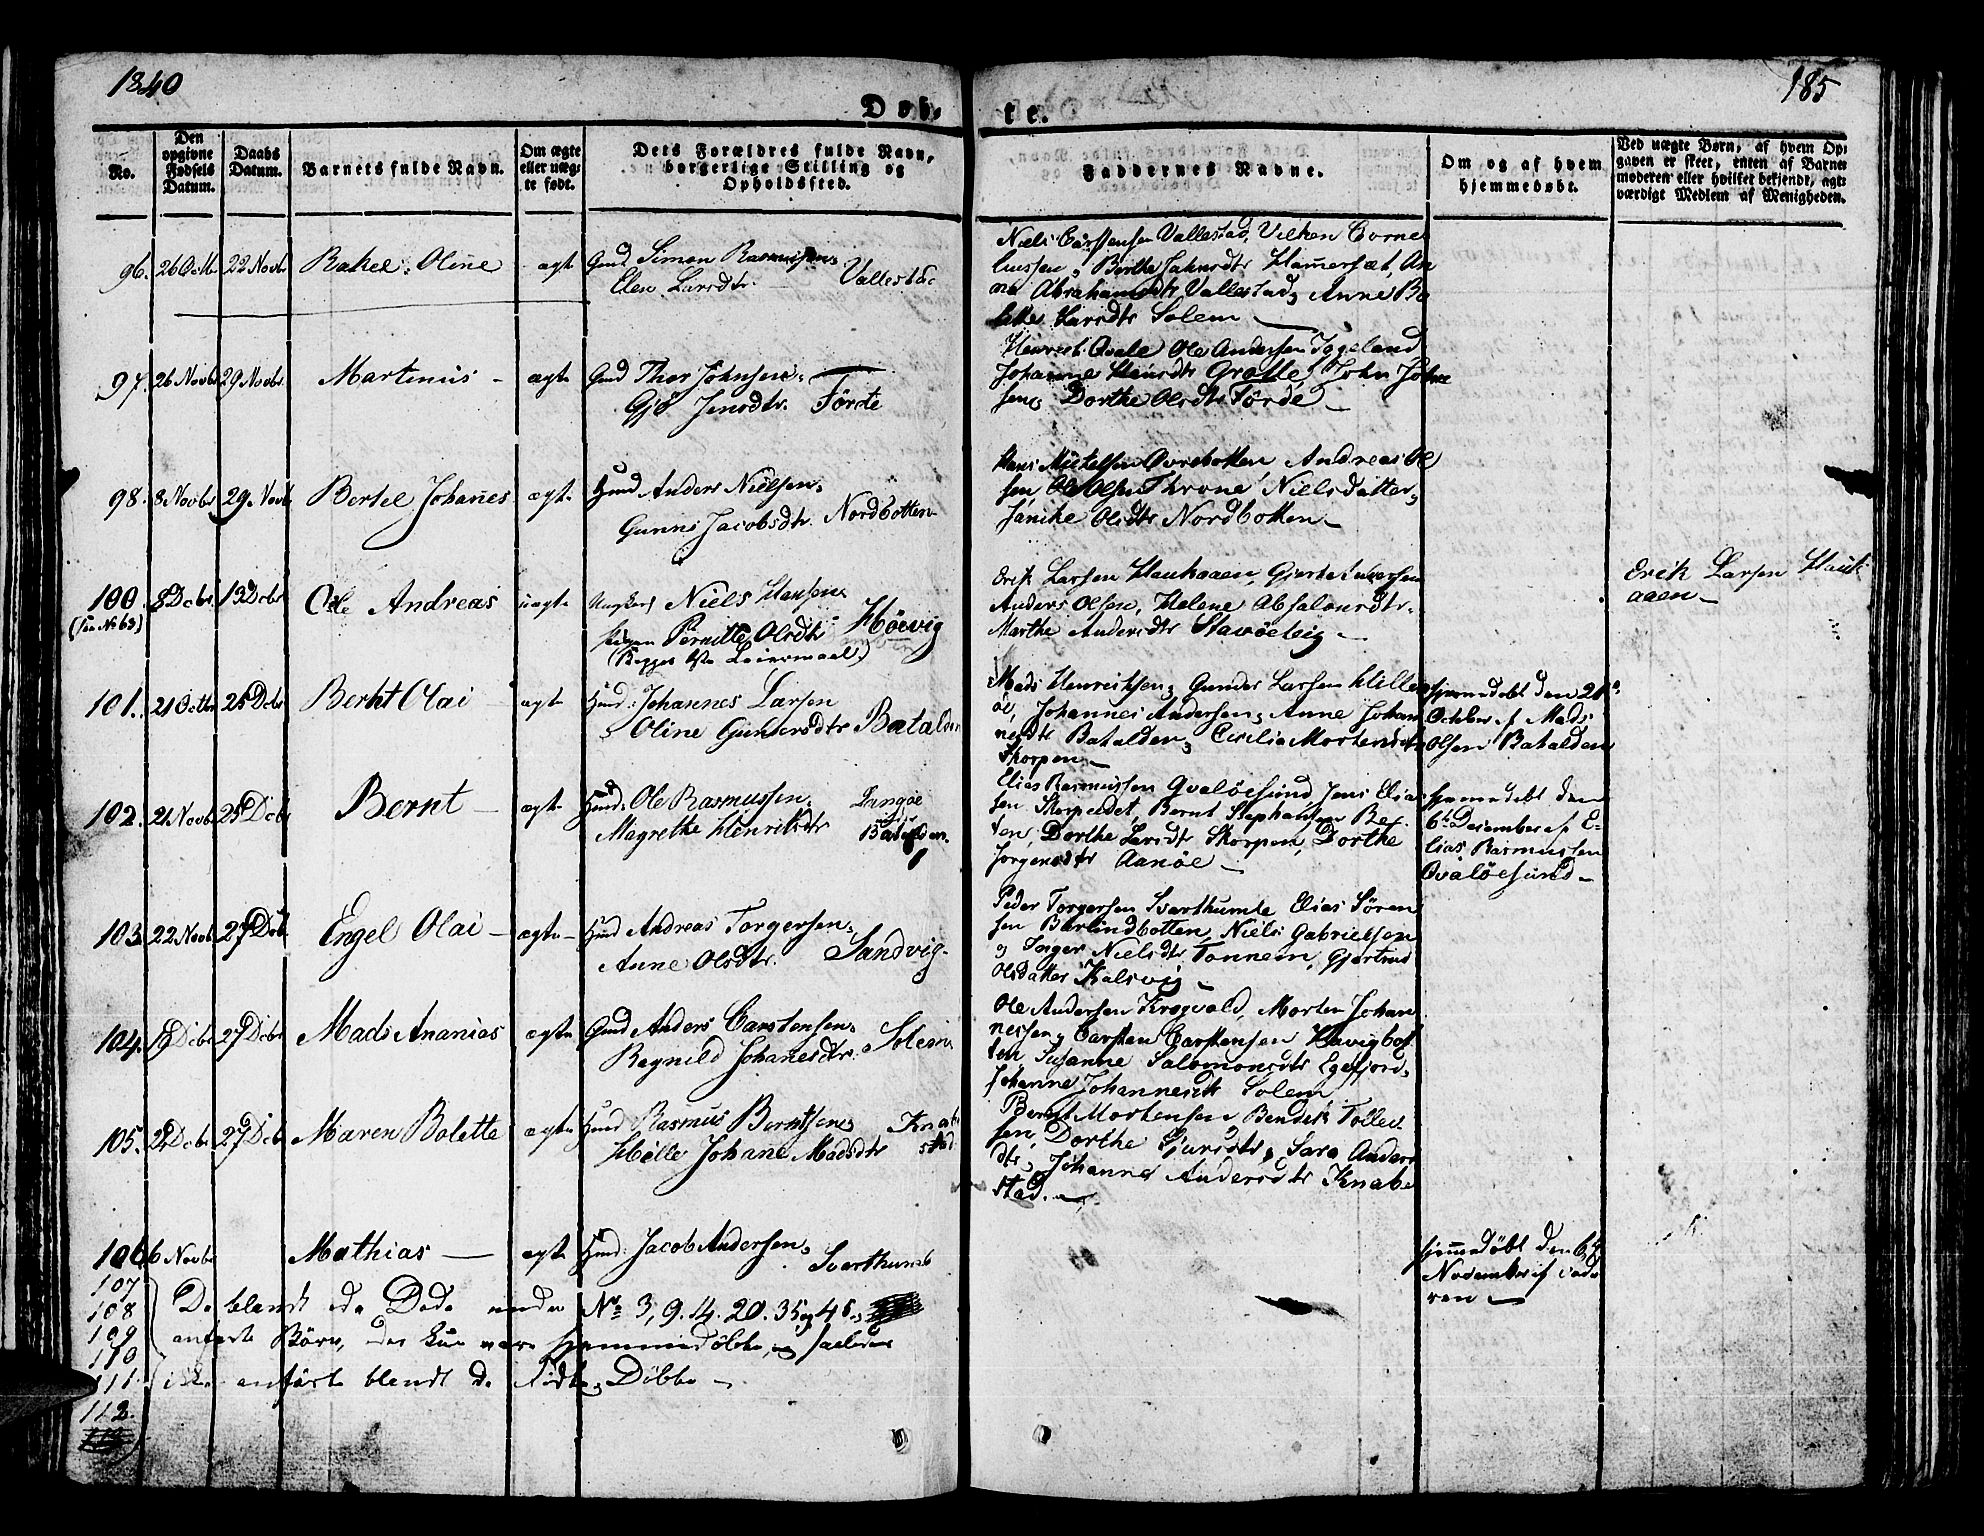 1840
185
Døb-
te.
No.
Den opgivne Fødsels Datum.
Daabs Datum.
Barnets fulde Navn.
Om ægte eller uægte født.
Dets Forældres fulde Navn, borgerlige Stilling og Opholdsted.
Faddernes Navne.
Om og af hvem hjemmedøbt.
Ved uægte Børn, af hvem Opgaven er skeet, enten af Barnemoderen eller hvilket bekjendt, agtværdigt Medlem af Menigheden.
96. 26 Octb 22 Novbr Rakel Oline ægte Gmd Simon Rasmussen
Elen Larsdtr. Vallestad
Niels Carstensen Vallestad, Vilken Corne
liussen, Berthe Hammerset, An
na Abrahamsdtr Vallestad, Anne Bo
lette Larsdtr Solem
97. 26 Novbr 29 Novbr Martinus ægte Gmd Thor Johnsen
Jensdtr. Førde
Henrich Qvale Ole Andersen
Johanne Hansdtr Grotle, John Johne
sen, Dorthe Olsdtr Førde
98. 8 Novbr 29. Novb Bertel Johanes ægte Huusmd Anders Nielsen
Gunni Jacobsdtr. Nordbotten
Hans Mikelsen Øvrebotten Andreas Ol
sen, Ole Olsen Throne Nielsdatter,
Janike Olsdtr Nordbotten
100. 8 Decbr 13 Decbr Ole Andreas uægte Ungkarl Niels Hansen
(see No 63)
Pigen Pernille Olsdtr Høevig
(Begges 1ste Leiermaal)
Erik Larsen Haukaaen,
Anders Olsen, Helene Absalonsdtr.
Marthe Andersdtr Stavøelvig
Erik Larsen Hauk
aaen
101. 21 Octbr 25 Decbr Bernt Olai ægte Huusmd Johannes Larsen
Oline Gundersdtr Batalden
Mads Henriksen, Gunder Larsen Hille
øe, Johannes Andersen, Anne Johan
nesdtr Batalden, Cecilia Mortensdtr
Skorpen
hjemmedøbt den 21de
Octbr af Mads
Olsen Batalden
102. 21 Novbr 25 Decbr Bernt ægte Huusmd Ole Rasmussen
Magrethe Henriksdtr Langøe
Batalden
Elias Rasmussen Qvaløesund, Jens Elias
sen Skorpeidet, Bernt Stephansen Ba
ten, Dorthe Larsdtr Skorpen, Dorthe
Jørgensdtr Aanøe
hjemmedøbt den
6te December af E-
lias Rasmussen
Qvaløesund
103. 22 Novbr 27 Decbr Engel Olai ægte Huusmd Andreas Torgersen
Anne Olsdtr. Sandvig
Peder Torgersen Svarthumle Elias Søren
sen Barlindbotten, Niels Gabrielsen
og Inger Nielsdtr Tonnem, Gjertrud
Olsdatter Kalsvig
104. Decbr 27 Decbr Mads Ananias ægte Gmd Anders Carstensen
Ragnild Johanesdtr. Solem
Ole Andersen Krogvald, Morten Johan
nessen, Carsten Carstensen Havigbot
ten Susanne Salomonsdtr Egefjord,
Johanne Johannesdtr Solem
105. Decbr 27 Decbr Maren Bolette ægte Huusmd Rasmus Berntsen
Hølle Johane Madsdtr Knabe
stad
Bernt Mortensen, Bendik Tolles
sen, Dorthe Sjursdtr, Sara Anders
dtr, Johanne Andersdtr Knabe
stad.
106 6 Novbr Mathias ægte Huusmd Jacob Andersen
Svarthumle
hjemmedøbt den 6te
November af Fade
ren
107
108
109
110
111
112.
De blandt de Døde under No 3, 9. 14. 20. 35 og 45
anførte Børn, der kun vare hjemmedøbte, og saaledes
ikke anførte blandt de Fødte, Døbte